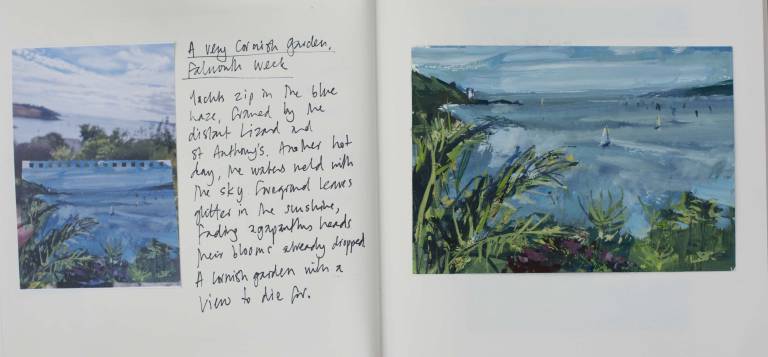 A very Cornish Garden,
Falmouth Week
Yachts zip in the blue
haze, framed by the
distant Lizard and
St Anthony's. Another hot
day, the waters meld with
the sky. Foreground leaves
glitter in the sunshine,
fading agapanthus heads
their blooms already dropped
A Cornish garden with a
view to die for.